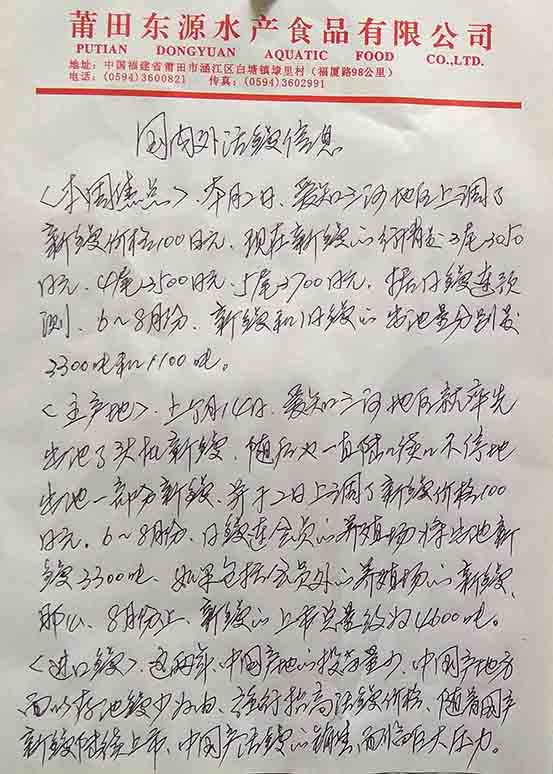 莆田东源水产食品有限公司
PUTIAN DONGYUAN AQUATIC FOOD CO.,LTD.
地址：中国福建省莆田市涵江区白塘镇埭里村（福厦路98公里）
电话：(0594)3600821 传真：(0594)3602991
国内外活鳗信息
<本周焦点>、本月2日、爱知三河地区上调了
新鳗价格100日元、现在新鳗的行情是3尾3050
日元、4尾3500日元、5尾3700日元，据日鳗连预
测、6～8月份、新鳗和旧鳗的出池量分别是
3300吨和1100吨。
<主产地>、上个月14日、爱知三河地区就率先
出池了头批新鳗，随后也一直陆陆续续不停地
出池一部分新鳗、并于2日上调了新鳗价格100
日元。6～8月份、日鳗连会员的养殖场将出池新
鳗3300吨、如果包括会员外的养殖场的新鳗、
那么、8月份止、新鳗的上市总量约为4600吨。
<进口鳗>、这两年、中国产地的投苗量少、中国产地方
面以存池鳗少为由、强行抬高活鳗价格、随着国产
新鳗陆续上市、中国产活鳗的销售面临巨大压力。